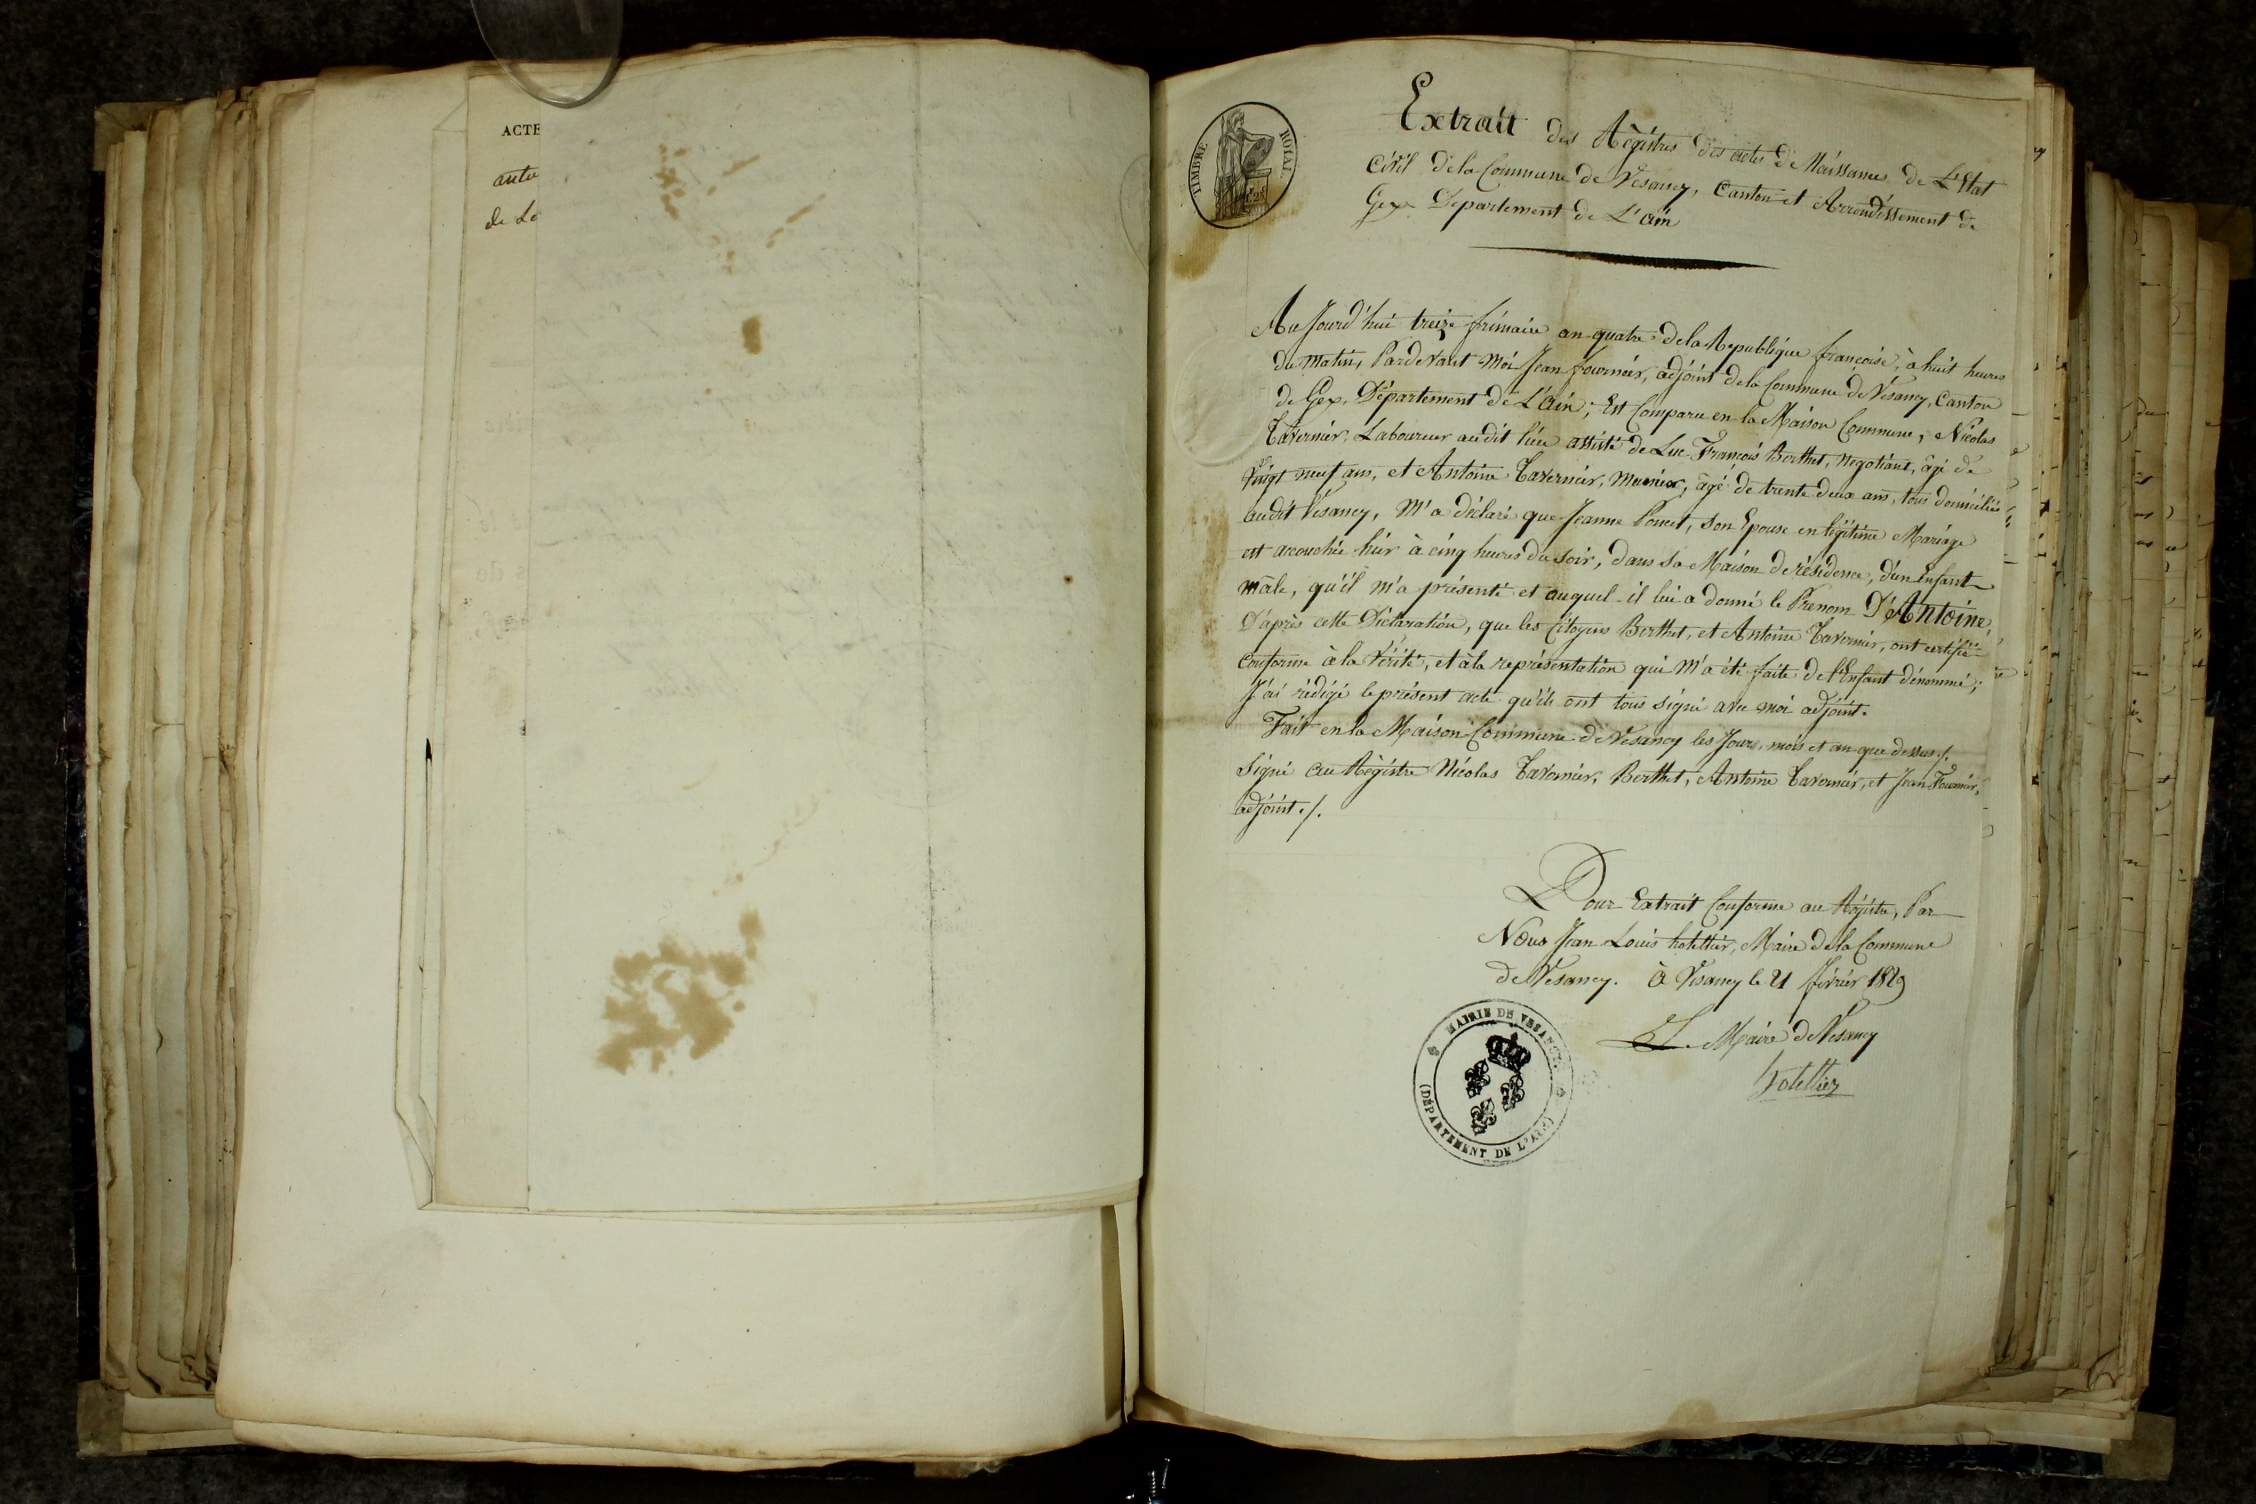 ACTE
de Lo
TIMBRE ROYAL
Extrait des Régistres des actes de Naissances de L'Etat
Civil de la Commune de Vésancy, Canton et Arrondissement de
Gex Département de L'ain
Aujourd'hui treize frimaire an quatre de la République françoise, à huit heures
du matin, Pardevant Moi Jean fournier, adjoint de la Commune de Vésancy, Canton
de Gex, Département de L'ain, Est Comparu en la Maison Commune, Nicolas
Tavernier, Laboureur audit lieu assisté de Luc François Berthet, négotiant, âgé de
vingt neuf ans, et Antoine Tavernier, Munier, âgé de trente deux ans, tous domiciliés
audit Vésancy, M'a déclaré que Jeanne Poncet, son Epouse en légitime Mariage
est accouchée hier à cinq heures du soir, dans sa Maison de résidence, d'un Enfant
mâle, qu'il m'a présenté et auquel il lui a donné le Prenom D'Antoine,
D'après cette Déclaration, que les Citoyens Berthet, et Antoine Tavernier, ont certifié
conforme à la Vérité, et à la représentation qui M'a été faite de l'Enfant dénommé;
J'ai rédigé le présent acte qu'ils ont tous signé avec moi adjoint.
Fait en la Maison Commune de Vésancy les Jours, mois et an que dessus /.
Signé au Régistre Nicolas Tavernier, Berthet, Antoine Tavernier, et Jean Fournier,
adjoint /.
Pour Extrait Conforme au Régistre, Par
Nous Jean Louis hotellier, Maire de la Commune
de Vésancy. à Vésancy le 21 février 1829
L. Maire de Vésancy
hotellier
MAIRIE DE VESANCY
(DÉPARTEMENT DE L'AIN)